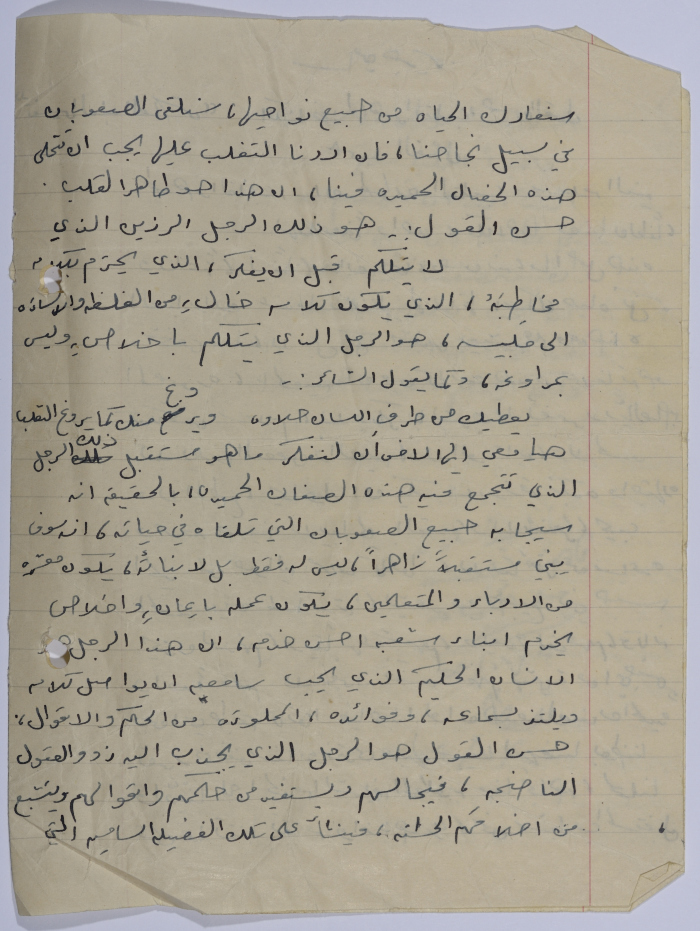 سنعارك الحياه من جميع نواحيها، سنلقى الصعوبات
في سبيل نجاحنا، فان اردنا التغلب عليها يجب ان تتحلى
هذه الخصال الحميده فينا، ان هذا هو طاهر القلب.
حسن القول:- هو ذلك الرجل الرزين الذي
لا يتكلم قبل ان يفكر، الذي يحترم بكلامه
مخاطبَهُ، الذي يكون كلامه خالٍ من الغلظه والاساءه
الى جليسه، هو الرجل الذي يتكلم باخلاصٍ وليس
بمراوغه، وكما يقول الشاعر:-
يعطيك من طرف اللسان حلاوه ويروغ منك كما يروغ الثعلب
هيا معي ايها الاخوان لنفكر ما هو مستقبل ذلك الرجل
الذي تتجمع فيه هذه الصفات الحميده، بالحقيقه انه
سيجابه جميع الصعوبات التي تلقاه في حياته، انه سوف
يبني مستقبلاً زاهراً، ليس له فقط بل لابنائهُ، يكون معشره
من الادباء والمتعلمين، يكون عمله بايمانٍ واخلاص
يخدم ابناء شعبه احسن خدمه، ان هذا الرجل هو
الانسان الحكيم الذي يحب سامعيه ان يواصل كلامه
ويلتذ بسماعه، وفوائده، المملوءه من الحكم والاقوال،
حسن القول هو الرجل الذي يجذب اليه ذوو العقول
الناضجه، فيجالسهم ويستفيد من حكمهم واقوالهم ويتشبع
من اخلاقهم الحسنه، فينشأ على تلك الفضيله الساميه التي